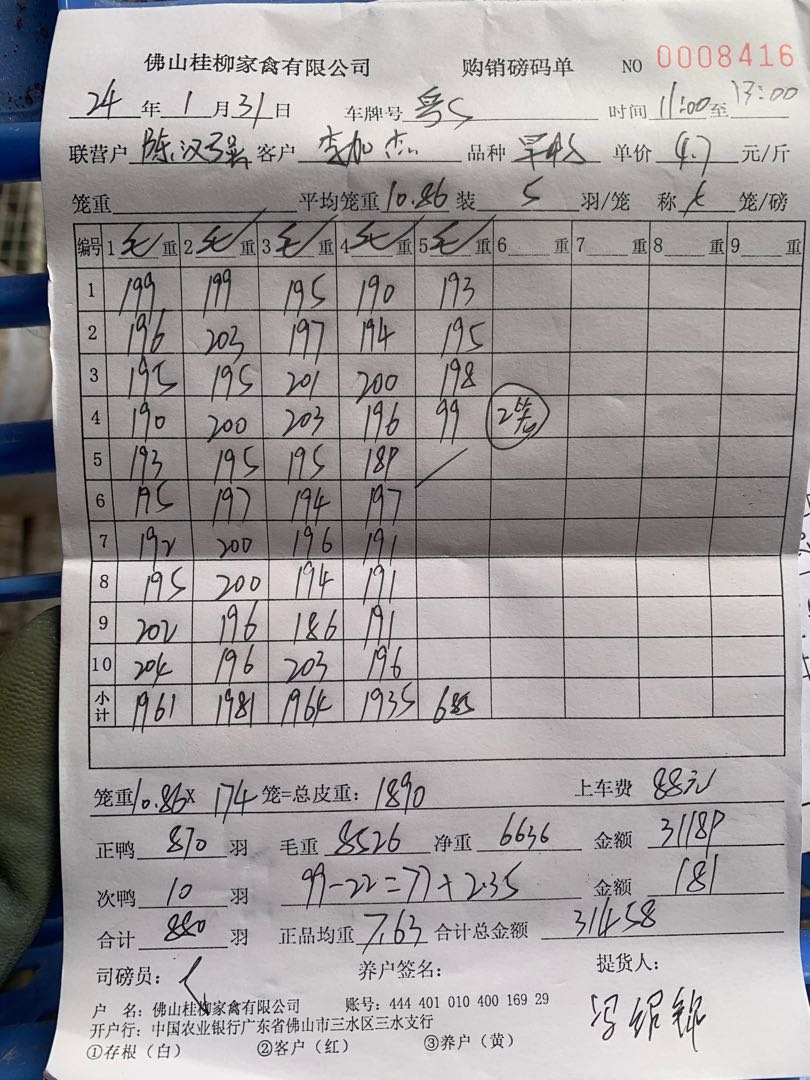 佛山桂柳家禽有限公司 购销磅码单 NO 0008416
24 年 1 月 31 日 车牌号 粤S 时间 11:00 至 13:00
联营户 陈汉强 客户 李加杰 品种 单价 4.7 元/斤
笼重 平均笼重 10.86 装 5 羽/笼 称 笼/磅
编号 1 毛 重 2 毛 重 3 毛 重 4 毛 重 5 毛 重 6 重 7 重 8 重 9 重
1 199 199 195 190 193
2 196 203 197 194 195
3 195 195 201 200 198
4 190 200 203 196 99 2笼
5 193 195 195 189
6 195 197 194 197
7 192 200 196 191
8 195 200 194 191
9 202 196 186 191
10 204 196 203 196
小计 1961 1981 1964 1935 685
笼重 10.86 X 174 笼=总皮重: 1890 上车费 88元
正鸭 870 羽 毛重 8526 净重 6636 金额 31189
次鸭 10 羽 99-22=77×2.35 金额 181
合计 880 羽 正品均重 7.63 合计总金额 31458
司磅员: 养户签名: 提货人:
户 名: 佛山桂柳家禽有限公司 账号: 444 401 010 400 169 29
开户行: 中国农业银行广东省佛山市三水区三水支行
①存根(白) ②客户(红) ③养户(黄)